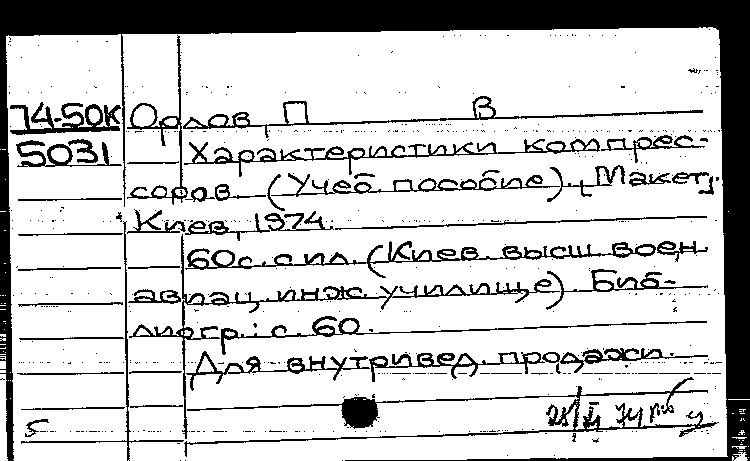 74-50К Орлов, П В
5031 Характеристики компрес-
соров. (Учеб. пособие). [Макет].
Киев, 1974.
60с. с ил. (Киев. высш. воен.
авиац. инж. училище). Биб-
лиогр.: с. 60.
Для внутривед. продажи.
5